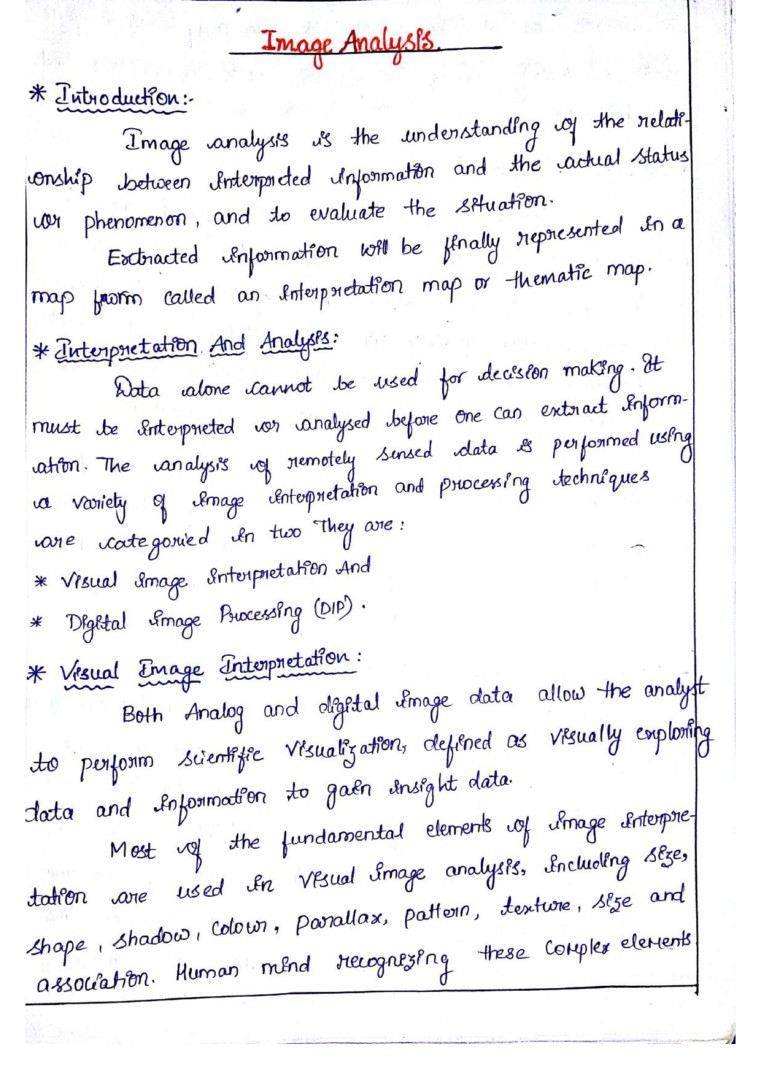 Image Analysis.
* Introduction:-
Image analysis is the understanding of the relati-
onship between interpreted information and the actual status
or phenomenon, and to evaluate the situation.
Extracted information will be finally represented in a
map form called an interpretation map or thematic map.
* Interpretation And Analysis:
Data alone cannot be used for decision making. It
must be interpreted or analysed before one can extract inform-
ation. The analysis of remotely sensed data is performed using
a variety of image interpretation and processing techniques
are categoried in two They are:
* Visual image interpretation And
* Digital image Processing (DIP).
* Visual Image Interpretation:
Both Analog and digital image data allow the analyst
to perform scientific visualization, defined as visually exploring
data and information to gain insight data.
Most of the fundamental elements of image interpre-
tation are used in visual image analysis, including size,
shape, shadow, colour, parallax, pattern, texture, size and
association. Human mind recognizing these complex elements